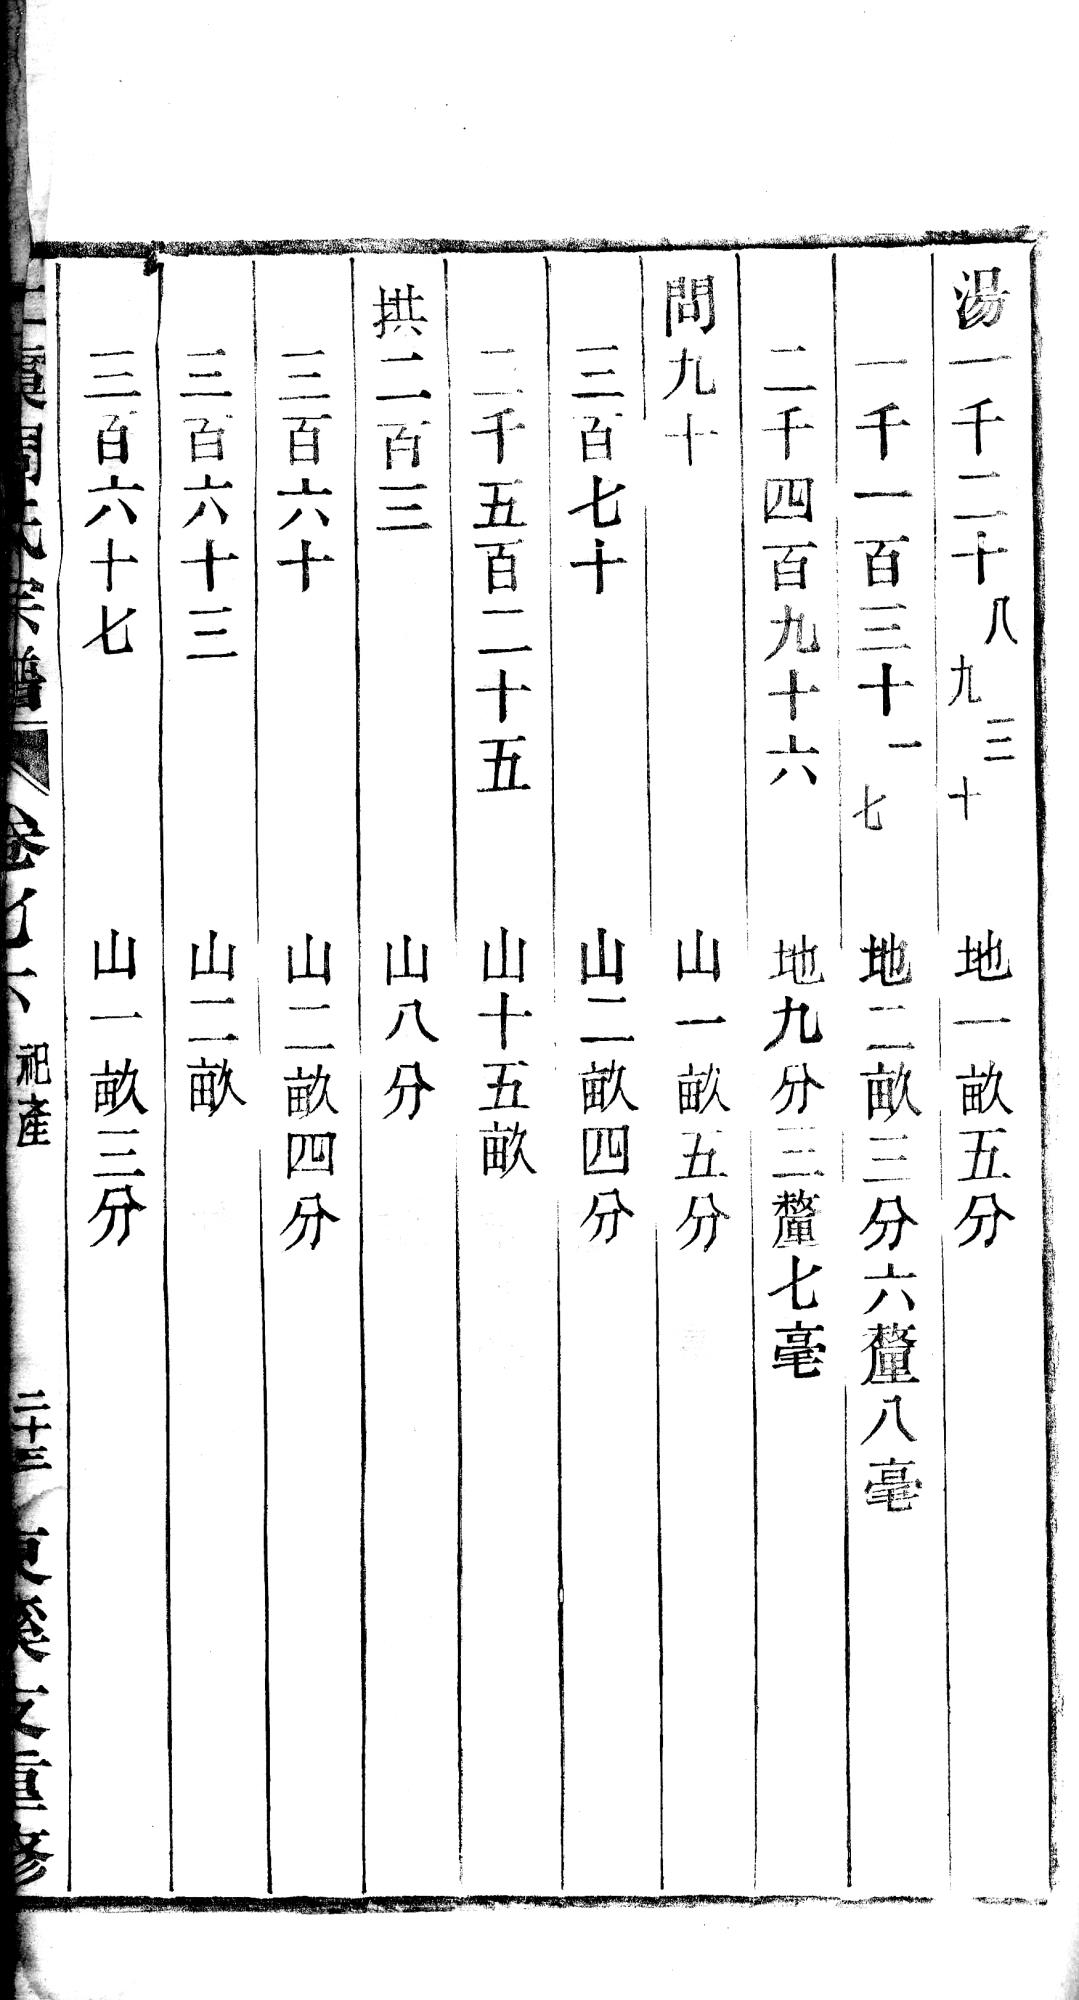 湯一千二十八九三十 地一畝五分
一千一百三十一七 地二畝三分六釐八毫
二千四百九十六 地九分三釐七毫
問九十 山一畝五分
三百七十 山二畝四分
二千五百二十五 山十五畝
拱二百三 山八分
三百六十 山二畝四分
三百六十三 山二畝
三百六十七 山一畝三分
周氏宗譜 卷 六 祀產 二十三 東溪支重修